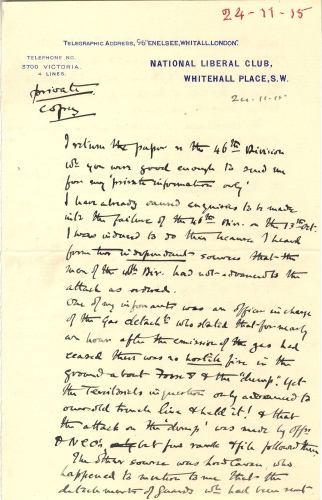 24-11-15
TELEGRAPHIC ADDRESS, "ENELSEE, WHITALL, LONDON".
TELEPHONE NO.
3700 VICTORIA.
4 LINES.
NATIONAL LIBERAL CLUB,
WHITEHALL PLACE, S.W.
24-11-15
private
copy
I return the paper on the 46th Division
wh you were good enough to send me
for my 'private information only'
I have already caused enquiries to be made
into the failure of the 46th Div. on the 13th Oct.
I was induced to do this because I heard
from two independant sources that the
men of the Div. had not advanced to the
attack as ordered.
One of my informants was an officer in charge
of the Gas detacht who stated that for nearly
an hour after the emission of the gas had
ceased there was no hostile fire in the
ground about Fosse 8 & the 'dump'. Yet
the Territorials in question only advanced to
our old trench line & held it! & that
the attack on the 'dump' was made by Offrs
& NCOs but few rank & file followed them
The other source was Lord Cavan, who
happened to mention to me that the
detachments of Guards wh had been sent